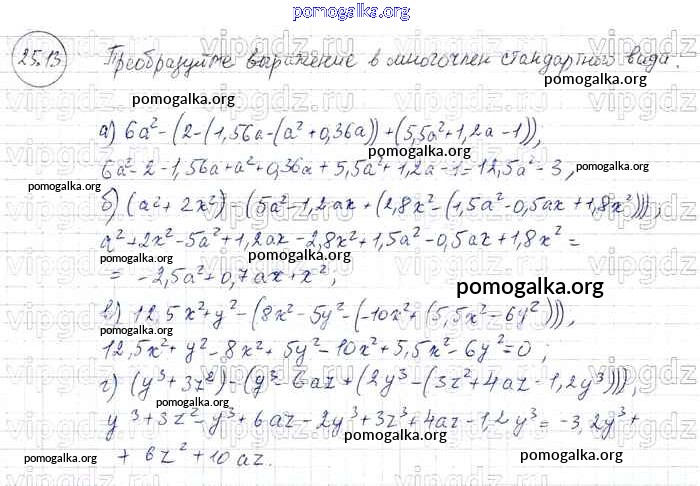 pomogalka.org
25.13 Преобразуйте выражение в многочлен стандартного вида.
pomogalka.org
pomogalka.org
а) 6a² - (2 - (1,56a - (a² + 0,36a)) + (5,5a² + 1,2a - 1)),
pomogalka.org
6a² - 2 - 1,56a + a² + 0,36a + 5,5a² + 1,2a - 1 = 12,5a² - 3,
pomogalka.org
pomogalka.org
б) (a² + 2x²) - (5a² - 1,2ax + (2,8x² - (1,5a² - 0,5ax + 1,8x²))),
pomogalka.org
a² + 2x² - 5a² + 1,2ax - 2,8x² + 1,5a² - 0,5ax + 1,8x² =
= -2,5a² + 0,7ax + x²,
pomogalka.org
pomogalka.org
в) 12,5x² + y² - (8x² - 5y² - (-10x² + (5,5x² - 6y²))),
pomogalka.org
12,5x² + y² - 8x² + 5y² - 10x² + 5,5x² - 6y² = 0;
pomogalka.org
г) (y³ + 3z²) - (y³ - 6az + (2y³ - (3z² + 4az - 1,2y³))),
pomogalka.org
y³ + 3z² - y³ + 6az - 2y³ + 3z² + 4az - 1,2y³ = -3,2y³ +
pomogalka.org
+ 6z² + 10az.
pomogalka.org
pomogalka.org